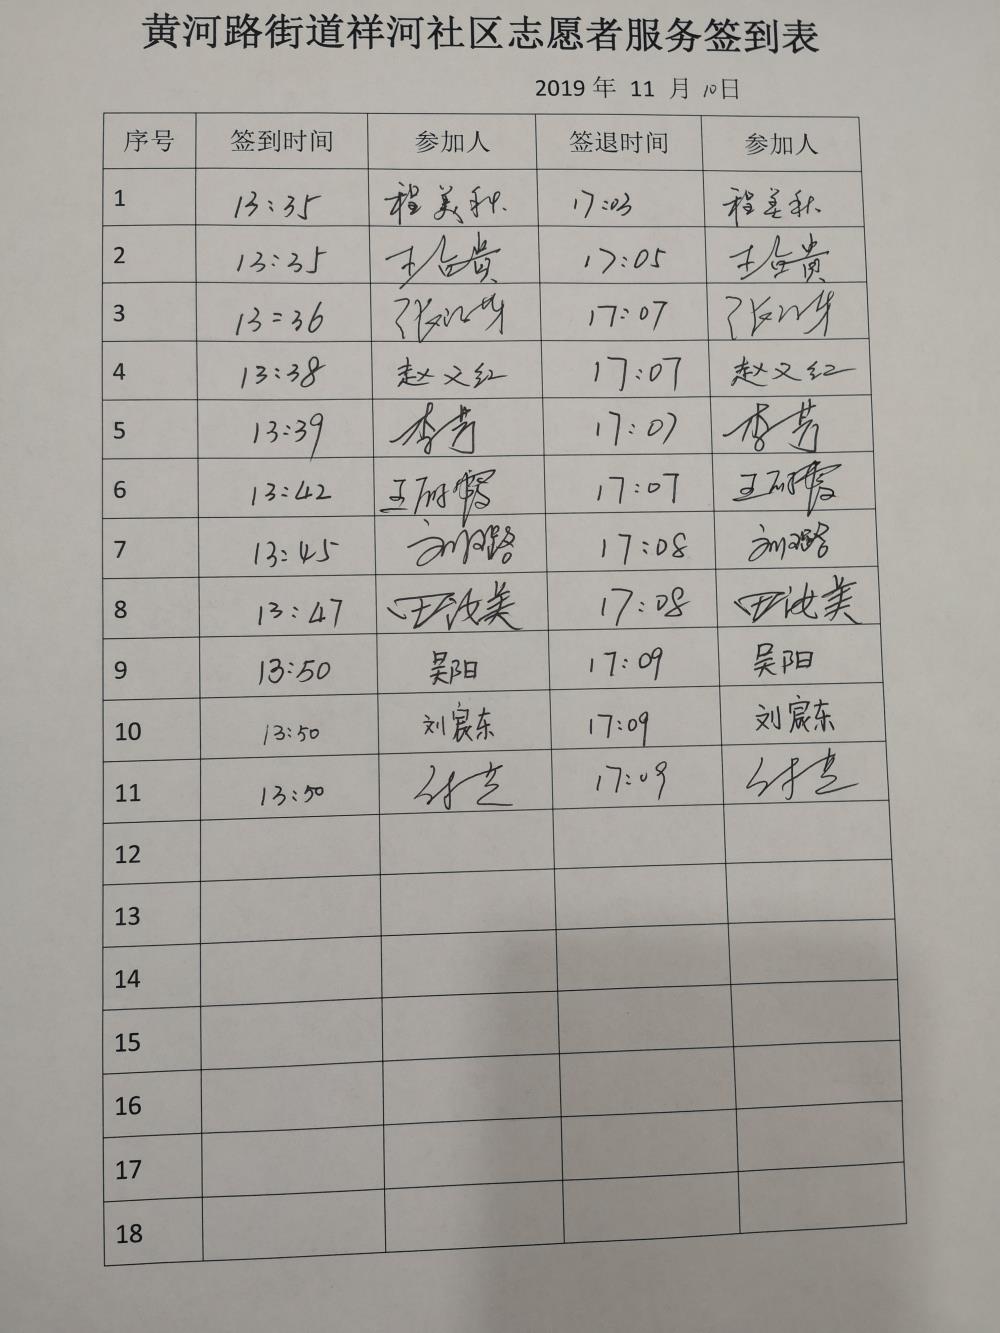 黄河路街道祥河社区志愿者服务签到表
2019 年 11 月 10日
序号 签到时间 参加人 签退时间 参加人
1 13:35 程美秋 17:03 程美秋
2 13:35 王合贵 17:05 王合贵
3 13:36 17:07
4 13:38 赵文红 17:07 赵文红
5 13:39 李芳 17:07 李芳
6 13:42 17:07
7 13:45 17:08
8 13:47 田汝美 17:08 田汝美
9 13:50 吴阳 17:09 吴阳
10 13:50 刘宸东 17:09 刘宸东
11 13:50 17:09
12
13
14
15
16
17
18